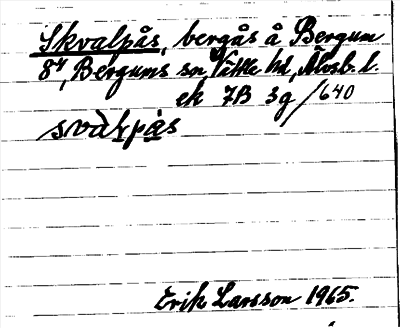 Skvalpås, bergås å Bergum
8⁴, Bergums sn, Vättle hd, Älvsb. l.
ek 7B 3g/640
svàlpås
Erik Larsson 1965.